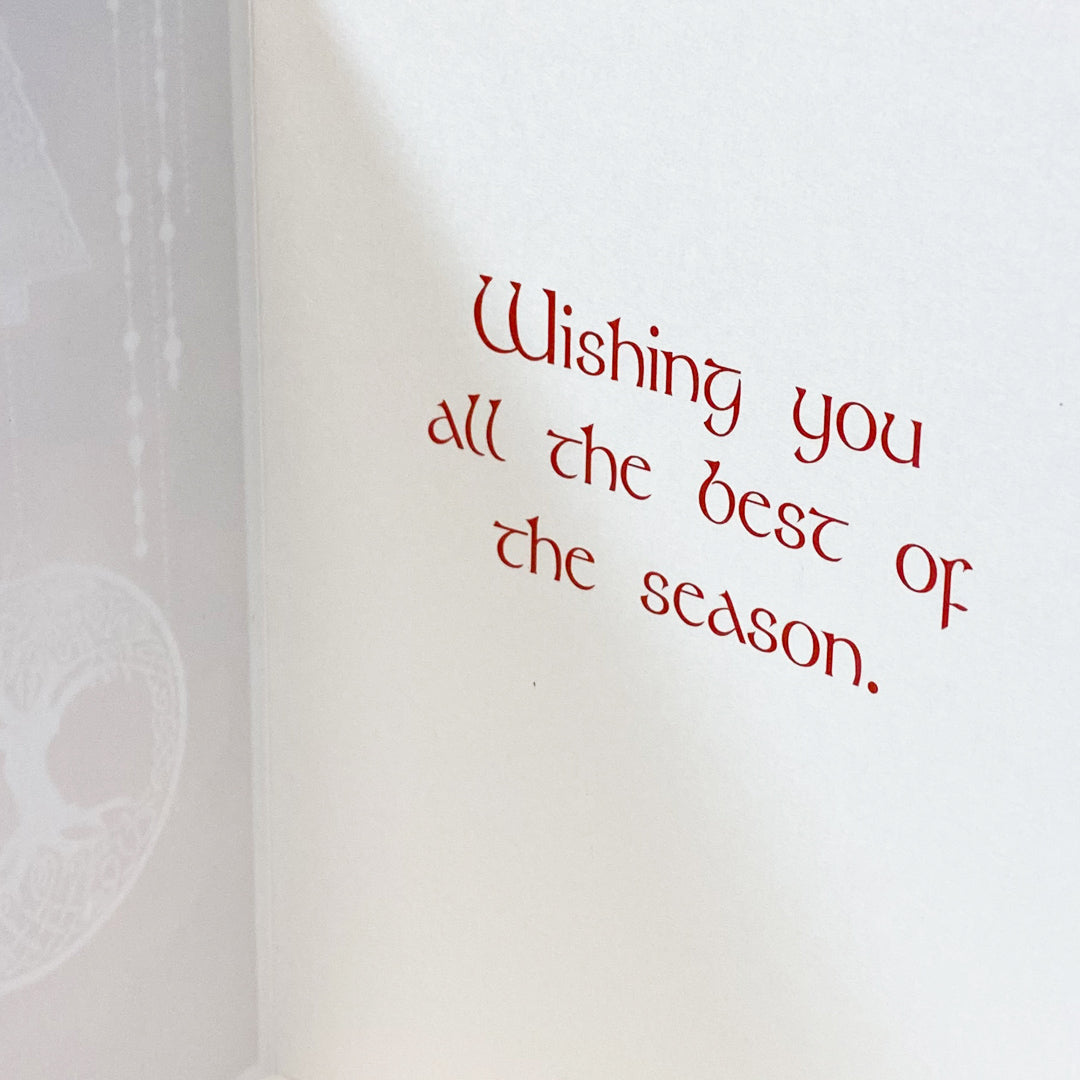 Wishing you
all the best of
the season.